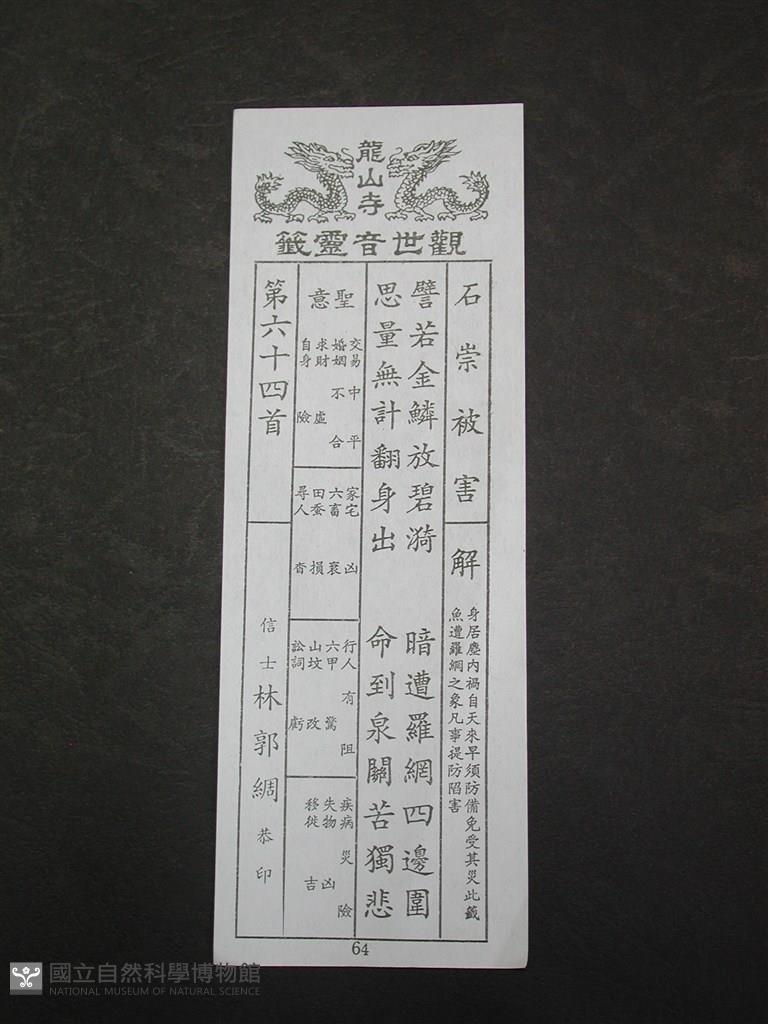 龍山寺
觀世音靈籤
石崇被害
解
身居塵內禍自天來早須防備免受其災此籤
魚遭羅網之象凡事提防陷害
譬若金鱗放碧漪
暗遭羅網四邊圍
思量無計翻身出
命到泉關苦獨悲
聖意
交易 中平
婚姻 不合
求財 虛
自身 險
家宅 凶
六畜 衰
田蚕 損
尋人 杳
行人 有阻
六甲 驚
山坟 改
訟詞 虧
疾病 災險
失物 凶
移徙 吉
第六十四首
信士 林郭綢 恭印
64
國立自然科學博物館
NATIONAL MUSEUM OF NATURAL SCIENCE